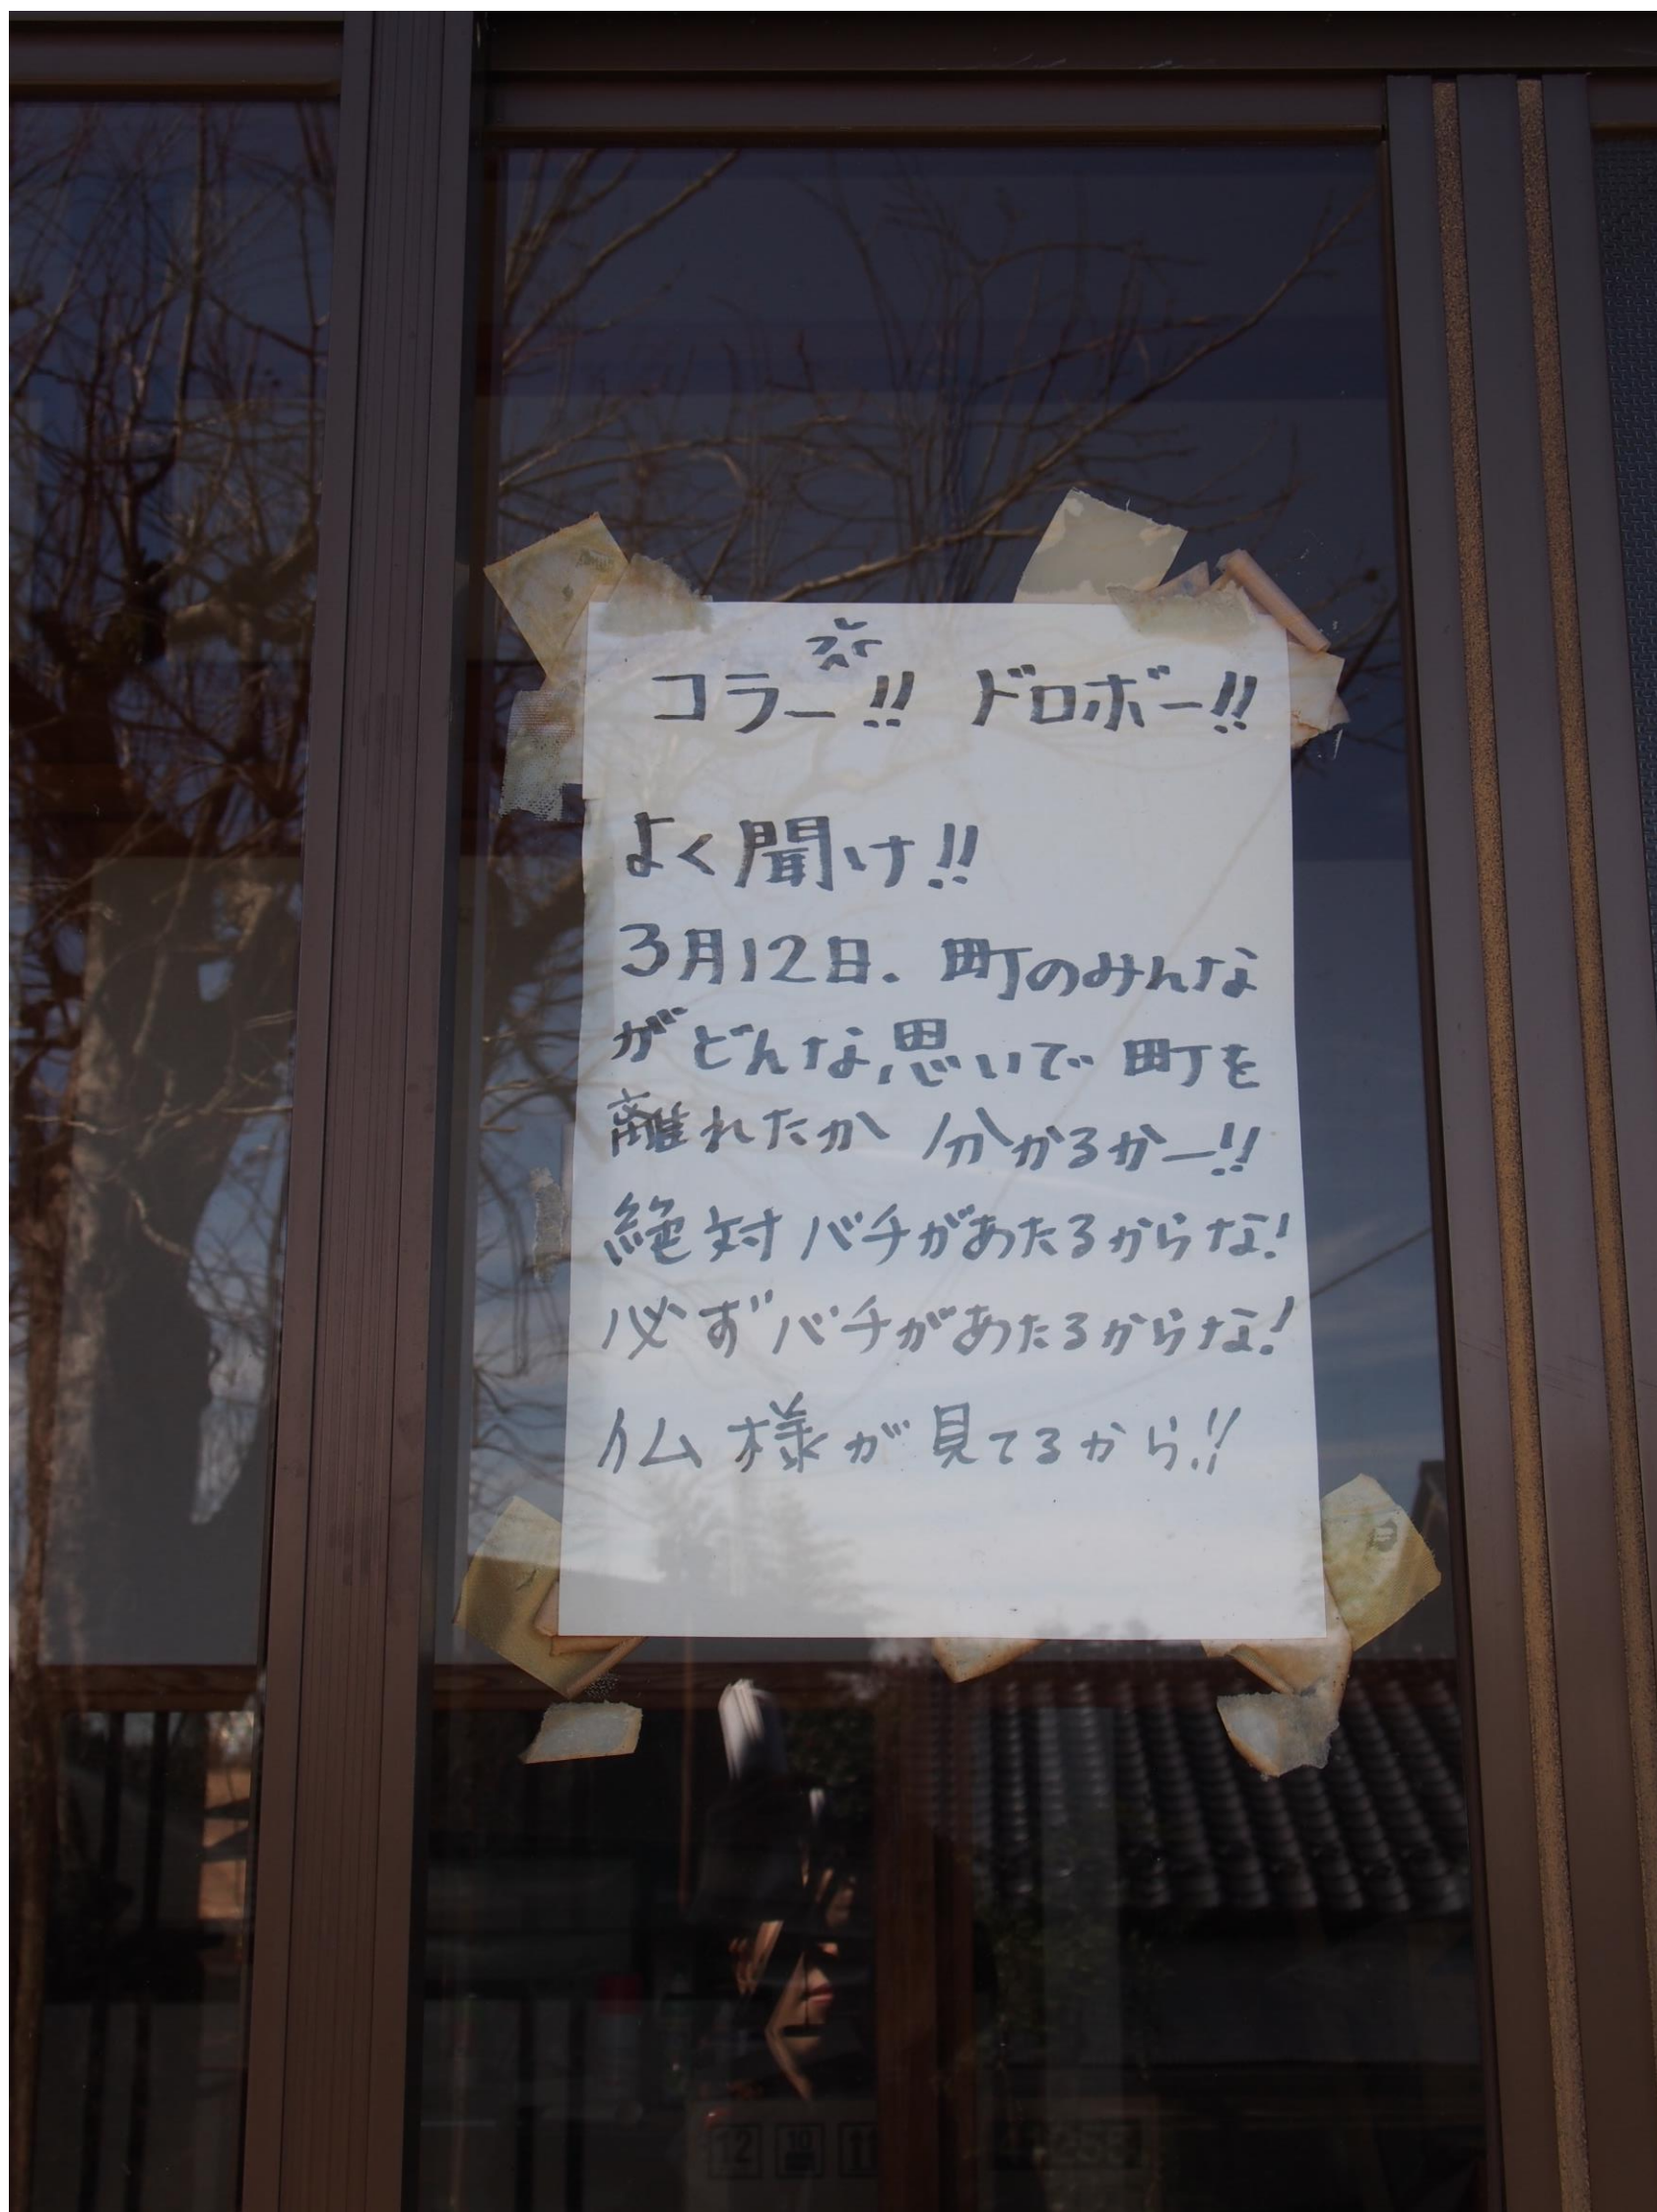 コラー!! ドロボー!!
よく聞け!!
3月12日. 町のみんな
がどんな思いで町を
離れたか 分かるかー!!
絶対バチがあたるからな!
必ずバチがあたるからな!
仏様が見てるから!!
12 10 11